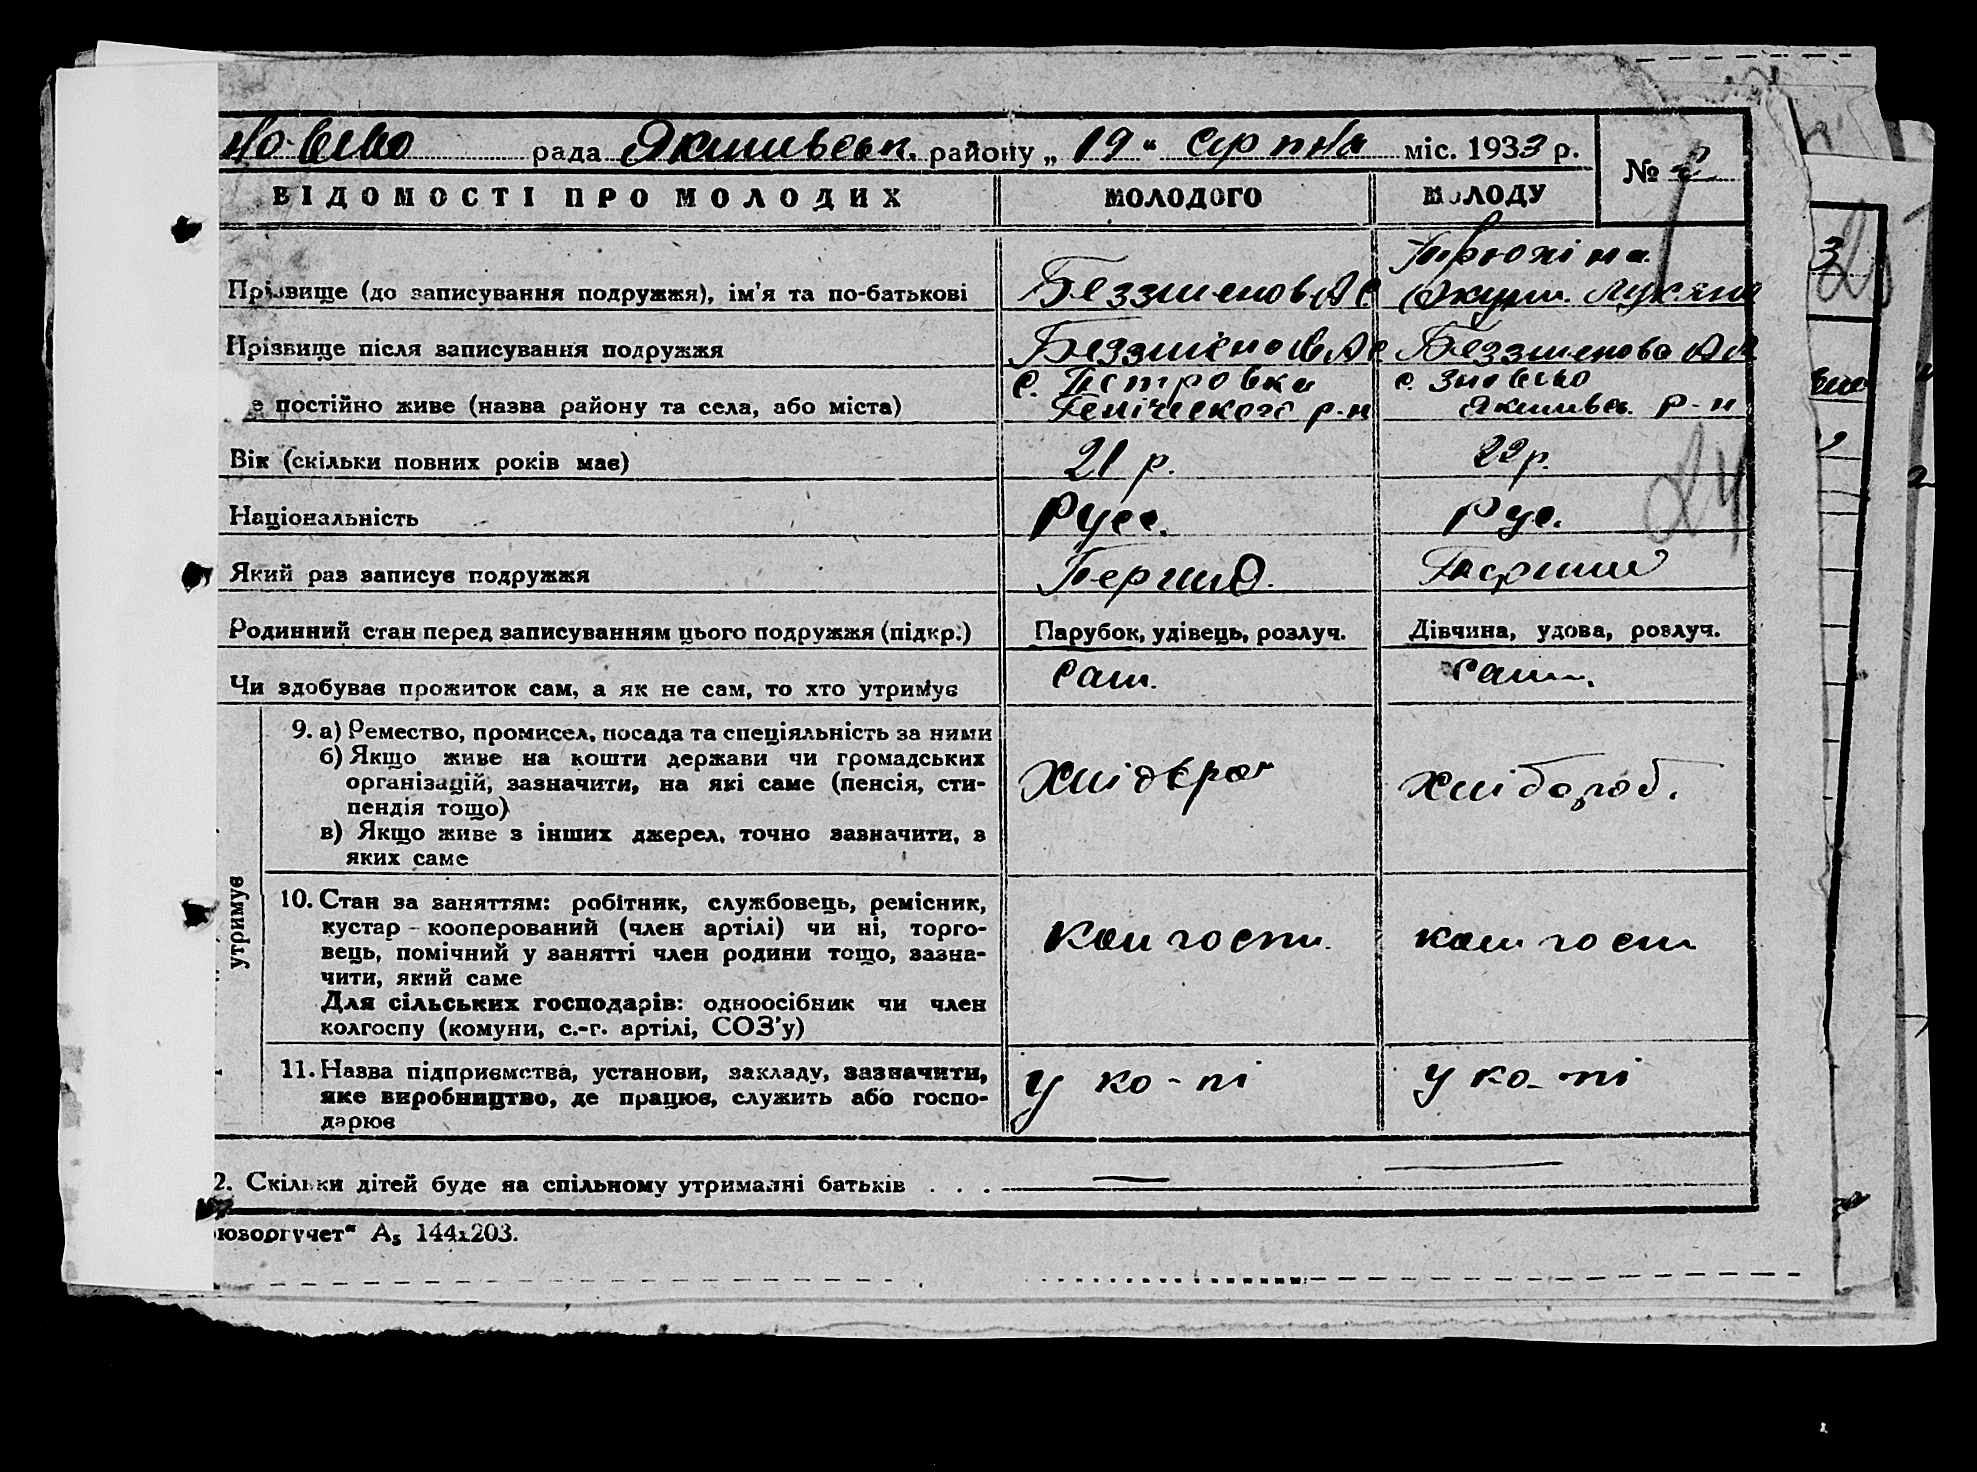 рада Якимівськ. району „19“ серпня міс. 1933 р.
№
ВІДОМОСТІ ПРО МОЛОДИХ МОЛОДОГО МОЛОДУ
Прізвище (до записування подружжя), ім'я та по-батькові Беззменов А С Трюхіна
Акули. Лукяно
Прізвище після записування подружжя Беззмінов А С Беззменова А Л
е постійно живе (назва району та села, або міста) с. Петровка с.
Генічеського р-н Якимівсь. р-н
Вік (скільки повних років має) 21 р. 22 р.
Національність Русс. Рус.
Який раз записує подружжя Перший. Перший
Родинний стан перед записуванням цього подружжя (підкр.) Парубок, удівець, розлуч. Дівчина, удова, розлуч.
Чи здобуває прожиток сам, а як не сам, то хто утримує сам. сама.
утримує
9. а) Ремество, промисел, посада та спеціяльність за ними
б) Якщо живе на кошти держави чи громадських
організацій, зазначити, на які саме (пенсія, сти-
пендія тощо)
в) Якщо живе з інших джерел, точно зазначити, з
яких саме
хлібороб.
10. Стан за заняттям: робітник, службовець, ремісник,
кустар-кооперований (член артілі) чи ні, торго-
вець, помічний у занятті член родини тощо, зазна-
чити, який саме
Для сільських господарів: одноосібник чи член
колгоспу (комуни, с.-г. артілі, СОЗ'у)
колгосп. колгосп
11. Назва підприємства, установи, закладу, зазначити,
яке виробництво, де працює, служить або госпо-
дарює
у ко-пі у ко-пі
2. Скільки дітей буде на спільному утриманні батьків . . .
юзоргучет“ А₅ 144х203.
24